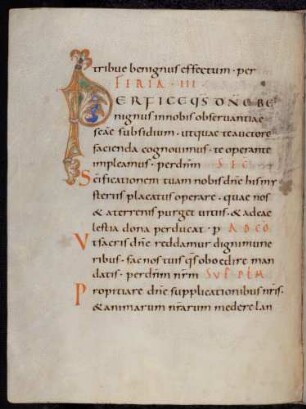 tribue benignus effectum · per
FERIA · III ·
PERFICE QS DNE BE
nignus in nobis observantiae
scae subsidium · ut quae te auctore
facienda cognovimus · te operante
impleamus · per dnm SEC
Scificationem tuam nobis dne his my
steriis placatus operare · quae nos
& a terrenis purget vitiis · & ad cae
lestia dona perducat · p AD CO
Ut sacris dne reddamur digni mune
ribus · fac nos tuis qs oboedire man
datis · per dnm nrm SUP PLM
Propitiare dne supplicationibus nris ·
& animarum nrarum medere lan